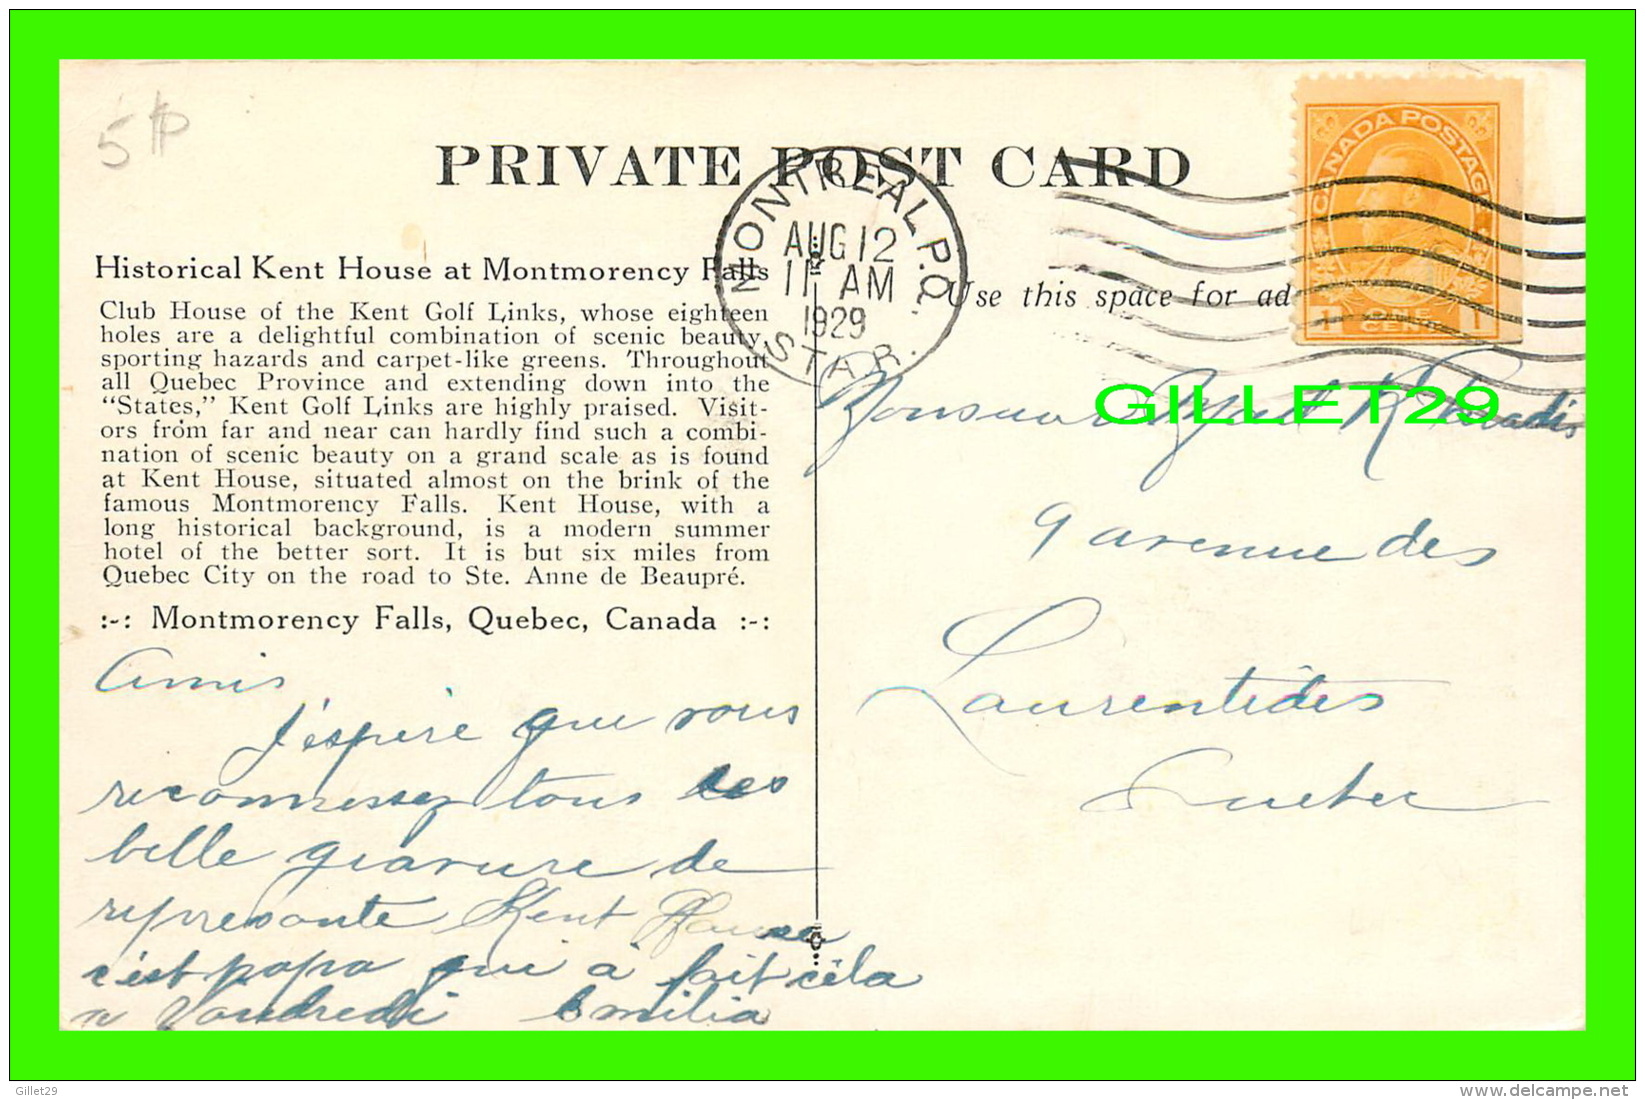 5
PRIVATE POST CARD
CANADA POSTAGE
1 ONE CENT 1
MONTREAL, P.Q.
AUG 12
11 AM
1929
STAR.
Historical Kent House at Montmorency Falls
Club House of the Kent Golf Links, whose eighteen
holes are a delightful combination of scenic beauty,
sporting hazards and carpet-like greens. Throughout
all Quebec Province and extending down into the
“States,” Kent Golf Links are highly praised. Visit-
ors from far and near can hardly find such a combi-
nation of scenic beauty on a grand scale as is found
at Kent House, situated almost on the brink of the
famous Montmorency Falls. Kent House, with a
long historical background, is a modern summer
hotel of the better sort. It is but six miles from
Quebec City on the road to Ste. Anne de Beaupré.
:-: Montmorency Falls, Quebec, Canada :-:
Amis
J'espère que vous
reconnessez tous les
belle gravure de
represante Kent House
c'est papa qui a fait cela
Vendredi Emilia
Use this space for ad
GILLET29
Paradis
9 avenue des
Laurentides
Quebec
Gillet29
delcampe.net